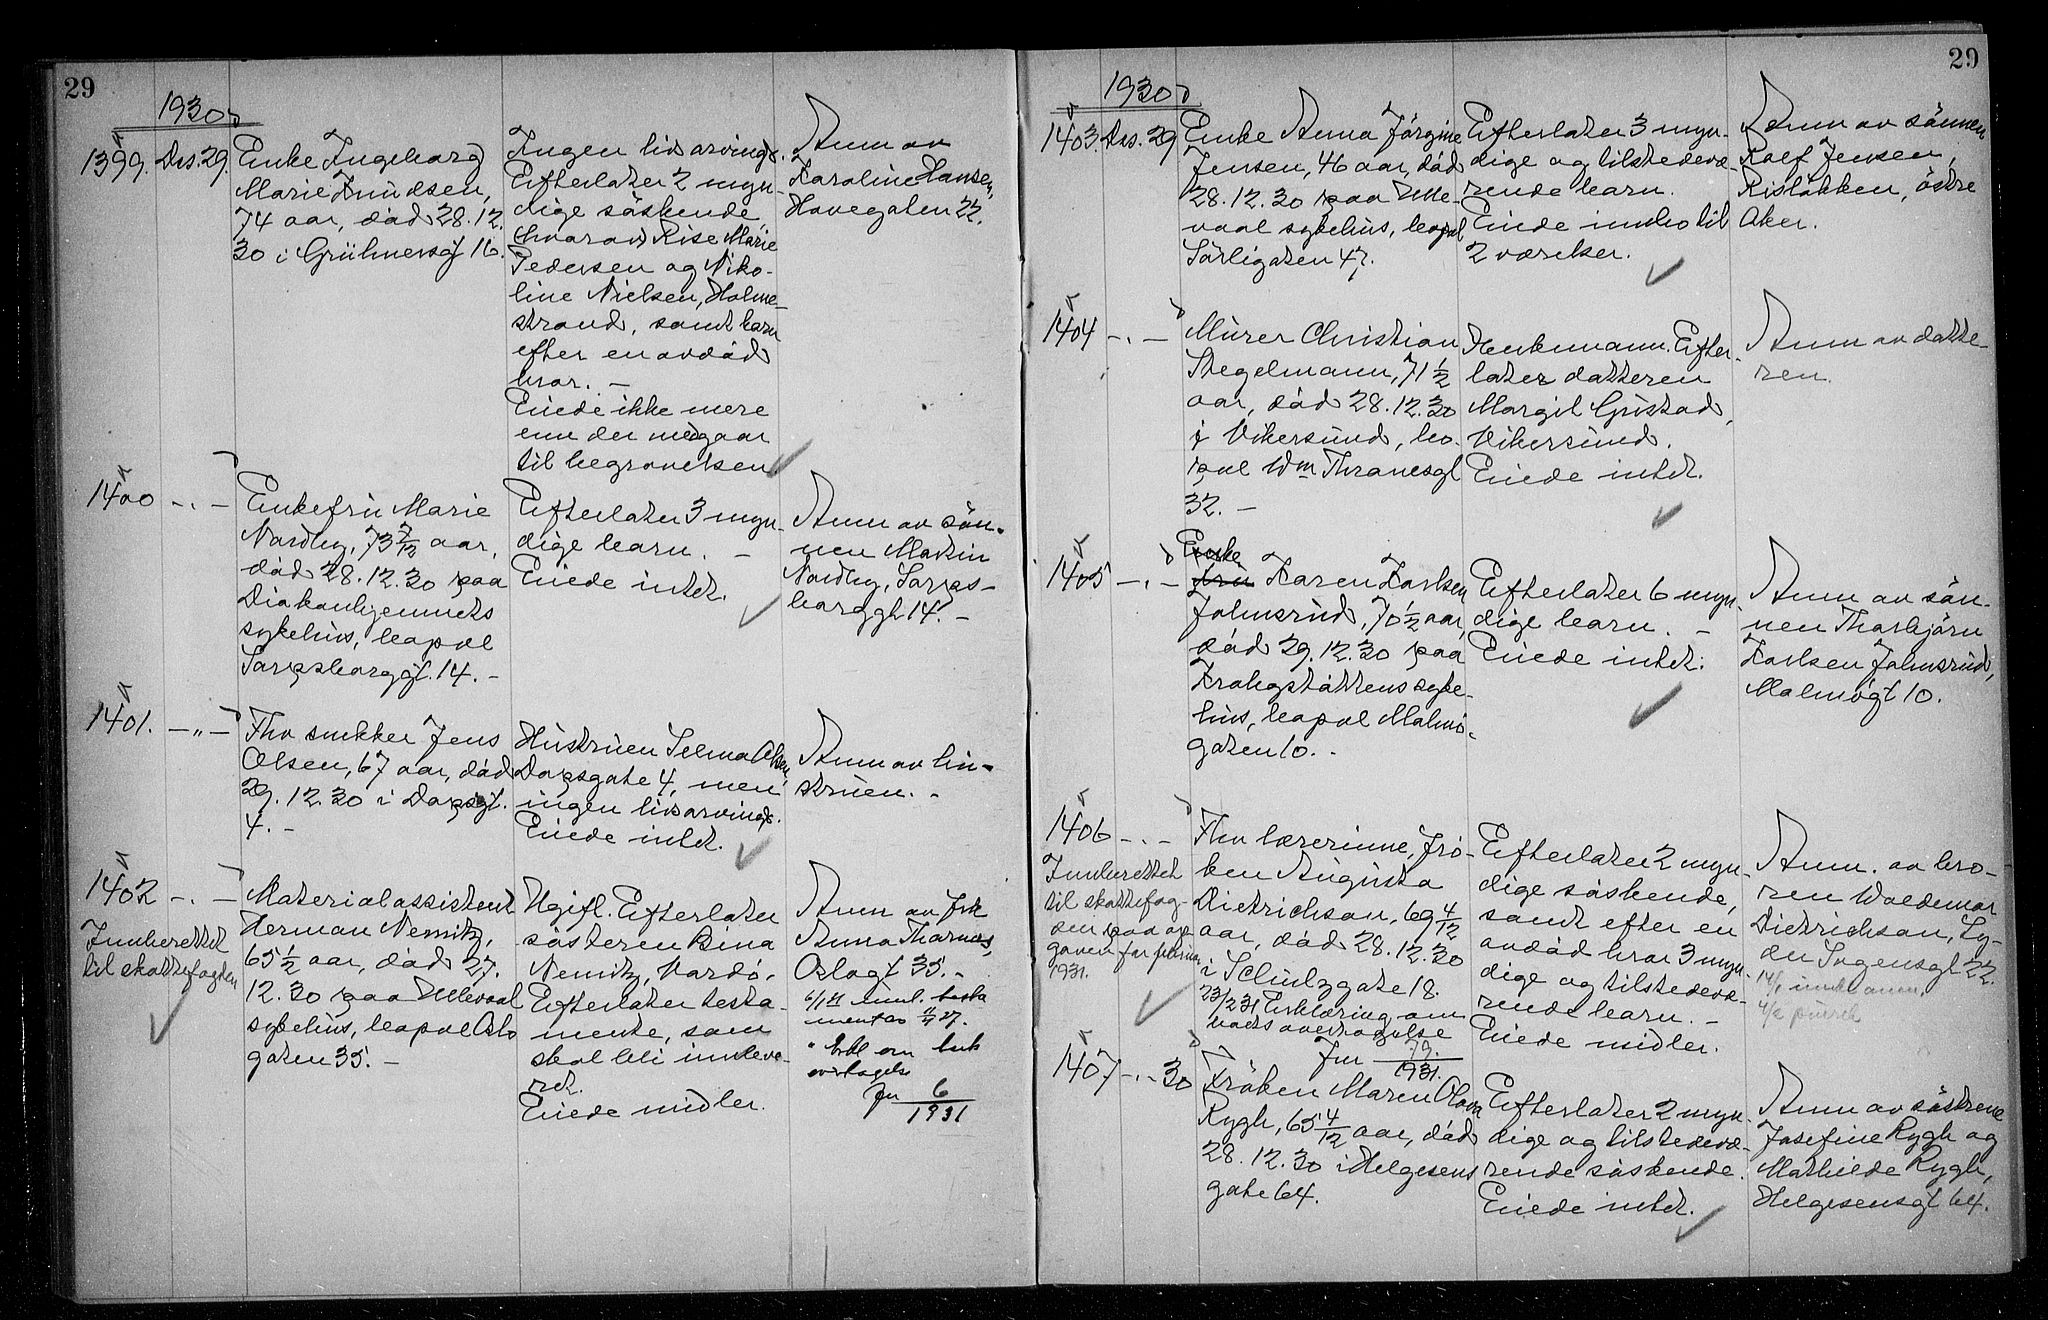 29
1930
1399. Des. 29.
Enke Ingeborg
Marie Knudsen,
74 aar, död 28.12.
30 i Grünersgt 16.
Ingen livsarving.
Efterlater 2 myn-
dige söskende
hvorav Rise Marie
Pedersen og Niko-
line Nielsen, Holme-
strand, samt barn
efter en avdöd
bror. –
Eiede ikke mere
enn der medgaar
til begravelsen.
Anm av
Karoline Hansen,
Havegaten 22.
1400 -.-
Enkefru Marie
Nordby, 73 7/12 aar,
död 28.12.30 paa
Diakonhjemmets
sykehus, bopæl
Sarpsborggt. 14. -
Efterlater 3 myn-
dige barn. –
Eiede intet.
Anm av sön-
nen Martin
Nordby, Sarps-
borggt 14. –
1401. -"-
Fhv snekker Jens
Olsen, 67 aar, död
29.12.30 i Dapsgt.
4. -
Hustruen Selma Olsen,
Dapsgate 4, men
ingen livsarving.
Eiede intet.
Anm av hu-
struen. -
1402 -.-
Innberettet
til skattefogden
Materialassistent
Herman Nemitz,
65 1/2 aar, död 27.
12.30 paa Ullevaal
sykehus, bopæl Oslo
gaten 35. –
Ugift. Efterlater
söstern Bina
Nemitz, Vardö.
Efterlater testa-
mente, som
skal bli innleve-
ret.
Eiede midler.
Anm av frk
Anna Tharnes,
Oslogt 35. -
6/1 31 innl. testa
mente
" Erkl om bob
overtagelse
Jnr 6/1931
29
1930
1403. Des. 29
Enke Anna Jörgine
Jensen, 46 aar, död
28.12.30 paa Ulle-
vaal sykehus, bopæl
Sörligaten 47.
Efterlater 3 myn-
dige og tilstedevæ-
rende barn.
Eiede innbo til
2 værelser.
Anm av sönnen
Rolf Jensen,
Rislökken, östre
Aker.
1404 -.-
Murer Christian
Stegelmann, 71 1/2
aar, död 28.12.30
i Vikersund, bo-
pæl Wm Thranesgt
32. –
Enkemann. Efter-
later datteren
Margit Gustad,
Vikersund.
Eiede intet.
Anm av datte-
ren.
1405 -.-
Enke
fru Karen Karlsen
Johnsrud, 70 1/2 aar,
död 29.12.30 paa
Krohgstöttens syke-
hus, bopæl Malmö-
gaten 10. -
Efterlater 6 myn-
dige barn. –
Eiede intet.
Anm av sön-
nen Thorbjörn
Karlsen Johnsrud,
Malmögt 10.
1406 -.-
Innberettet
til skattefog-
den paa op-
gaven for februar
1931.
Fhv lærerinne, frö-
ken Augusta
Dietrichson, 69 4/12
aar, död 28.12.30
i Schultzgate 18.
23/2 31 Erklæring om
boets overtagelse
Jnr 79/1931.
Efterlater 2 myn-
dige söskende,
samt efter en
avdöd bror 3 myn-
dige og tilstedevæ-
rende barn. –
Eiede midler.
Anm. av bro-
ren Woldemar
Dietrichson, Ly-
der Sagensgt 22.
4/2 purret
1407 -.- 30
Fröken Maren Olava
Rygh, 65 4/12 aar, död
28.12.30 i Helgesens
gate 64.
Efterlater 2 myn-
dige og tilstedevæ-
rende söskende.
Eiede intet.
Anm av söstrene
Josefine Rygh og
Mathilde Rygh,
Helgesensgt 64.